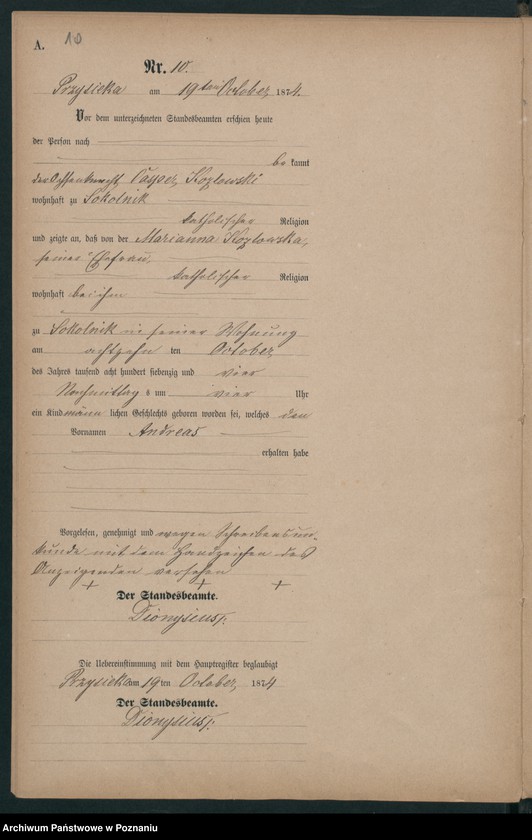 A. 10
Nr. 10.
Przysieka am 19ten October 1874.
Vor dem unterzeichneten Standesbeamten erschien heute
der Person nach
be kannt
der Ochsenknecht Casper Kozlowski
wohnhaft zu Sokolnik
katholischer Religion
und zeigte an, daß von der Marianna Kozlowska,
seiner Ehefrau,
katholischer Religion
wohnhaft bei ihm
zu Sokolnik in seiner Wohnung
am achtzehn ten October
des Jahrs tausend acht hundert siebenzig und vier
Nachmittag s um vier Uhr
ein Kind männ lichen Geschlechts geboren worden sei, welches den
Vornamen Andreas
erhalten habe
Vorgelesen, genehmigt und wegen Schreibensun-
kunde mit dem Handzeichen des
Anzeigenden versehen
+ + +
Der Standesbeamte.
Dionysius
Die Uebereinstimmung mit dem Hauptregister beglaubigt
Przysieka am 19 ten October 1874
Der Standesbeamte.
Dionysius
Archiwum Państwowe w Poznaniu